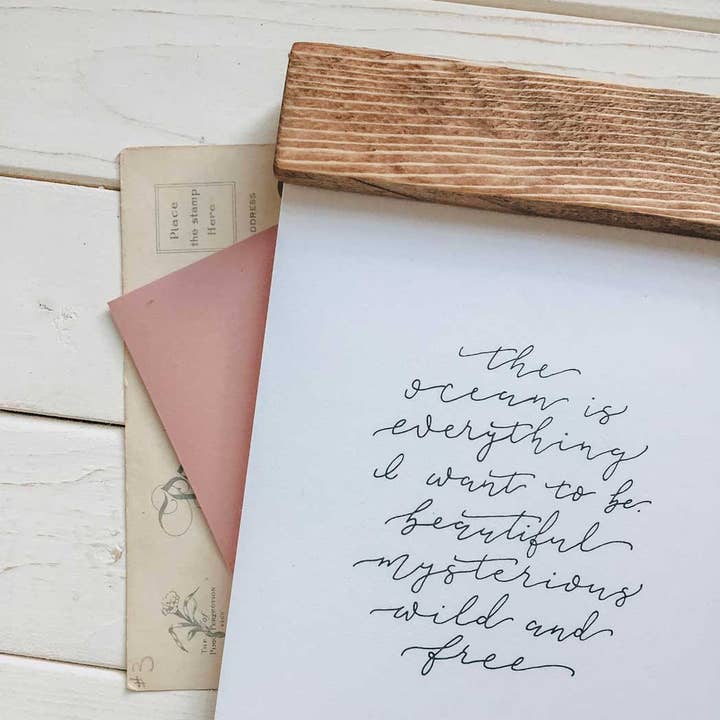 Place
the stamp
Here
ADDRESS
the
ocean is
everything
I want to be.
beautiful
mysterious
wild and
free
#3